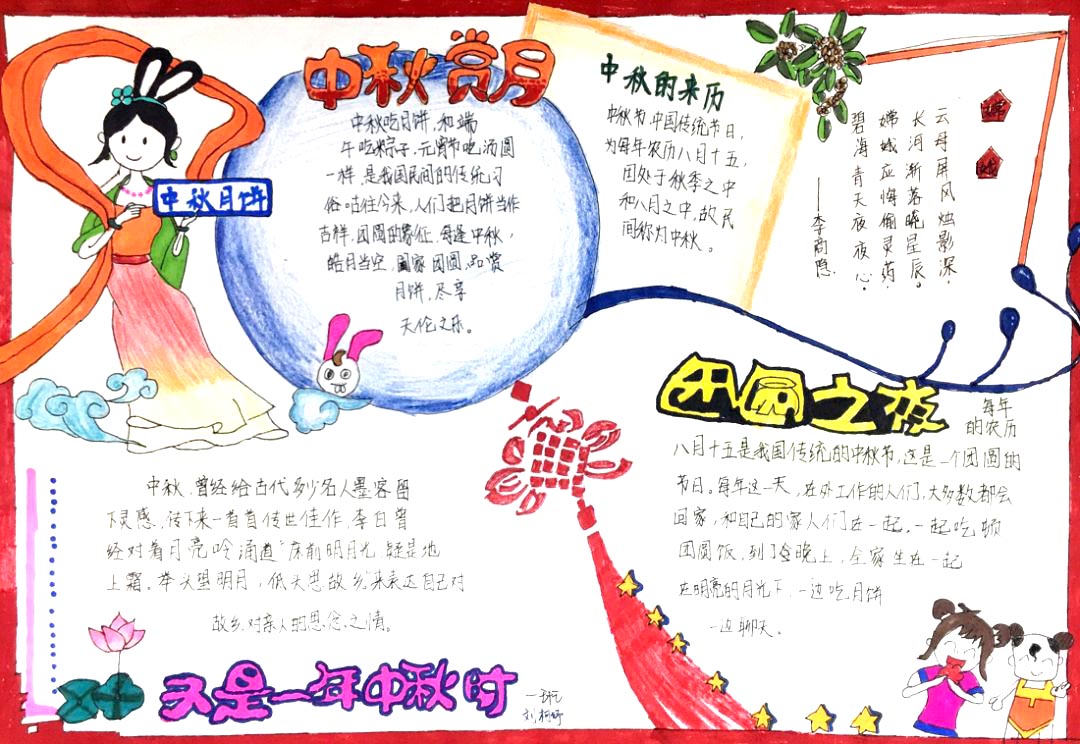 中秋赏月
中秋吃月饼,和端
午吃粽子、元宵节吃汤圆
一样,是我国民间的传统习
俗。咕往今来,人们把月饼当作
吉祥、团圆的象征。每逢中秋,
皓月当空,国家团圆,品赏
月饼,尽享
天伦之乐。
中秋月饼
中秋的来历
中秋节中国传统节日,
为每年农历八月十五,
因处于秋季之中
和八月之中,故民
间称为中秋。
嫦
娥
云母屏风烛影深,
长河渐落晓星辰。
嫦娥应悔偷灵药,
碧海青天夜夜心。
——李商隐
团圆之夜
每年
的农历
八月十五是我国传统的中秋节,这是一个团圆的
节日。每年这一天,在外工作的人们,大多数都会
回家,和自己的家人们在一起。一起吃顿
团圆饭,到了晚上,全家坐在一起
在明亮的月光下,一边吃月饼
一边聊天。
中秋,曾经给古代多少名人墨客留
下灵感,传下来一首首传世佳作,李白曾
经对着月亮吟诵道“床前明月光,疑是地
上霜。举头望明月,低头思故乡”来表达自己对
故乡对亲人的思念之情。
又是一年中秋时
刘柯